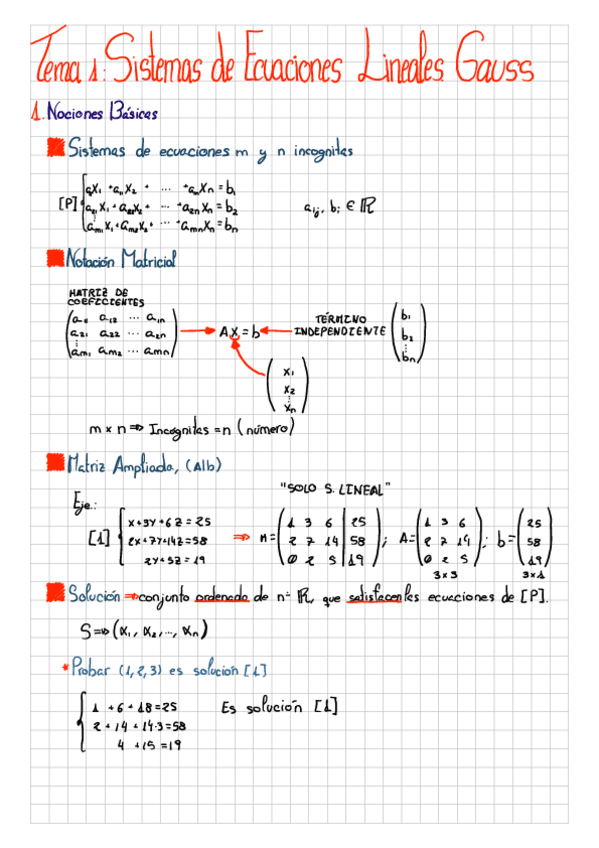 Tema 1: Sistemas de Ecuaciones Lineales Gauss
1. Nociones Básicas
Sistemas de ecuaciones m y n incognitas
a₁₁X₁ + a₁₂X₂ + ... + a₁ₙXₙ = b₁
[P] a₂₁X₁ + a₂₂X₂ + ... + a₂ₙXₙ = b₂ aᵢⱼ, bᵢ ∈ ℝ
aₘ₁X₁ + aₘ₂X₂ + ... + aₘₙXₙ = bₙ
Notación Matricial
MATRIZ DE
COEFICIENTES
a₁₁ a₁₂ ... a₁ₙ
a₂₁ a₂₂ ... a₂ₙ
⋮
aₘ₁ aₘ₂ ... aₘₙ
A x = b
TÉRMINO
INDEPENDIENTE
b₁
b₂
⋮
bₙ
x₁
x₂
⋮
xₙ
m x n ⇒ Incognitas = n (número)
Matriz Ampliada, (A|b)
"SOLO S. LINEAL"
Eje.:
[1] x+3y+6z=25 ⇒ M= 1 3 6 | 25 ; A= 1 3 6 ; b= 25
2x+7y+14z=58 2 7 14 | 58 2 7 14 58
2y+5z=19 0 2 5 | 19 0 2 5 19
3x3 3x1
Solución ⇒ conjunto ordenado de nº ℝ, que satisfacen les ecuaciones de [P].
S ⇒ (α₁, α₂, ..., αₙ)
* Probar (1,2,3) es solución [1]
1 + 6 + 18 = 25 Es solución [1]
2 + 14 + 14·3 = 58
4 + 15 = 19